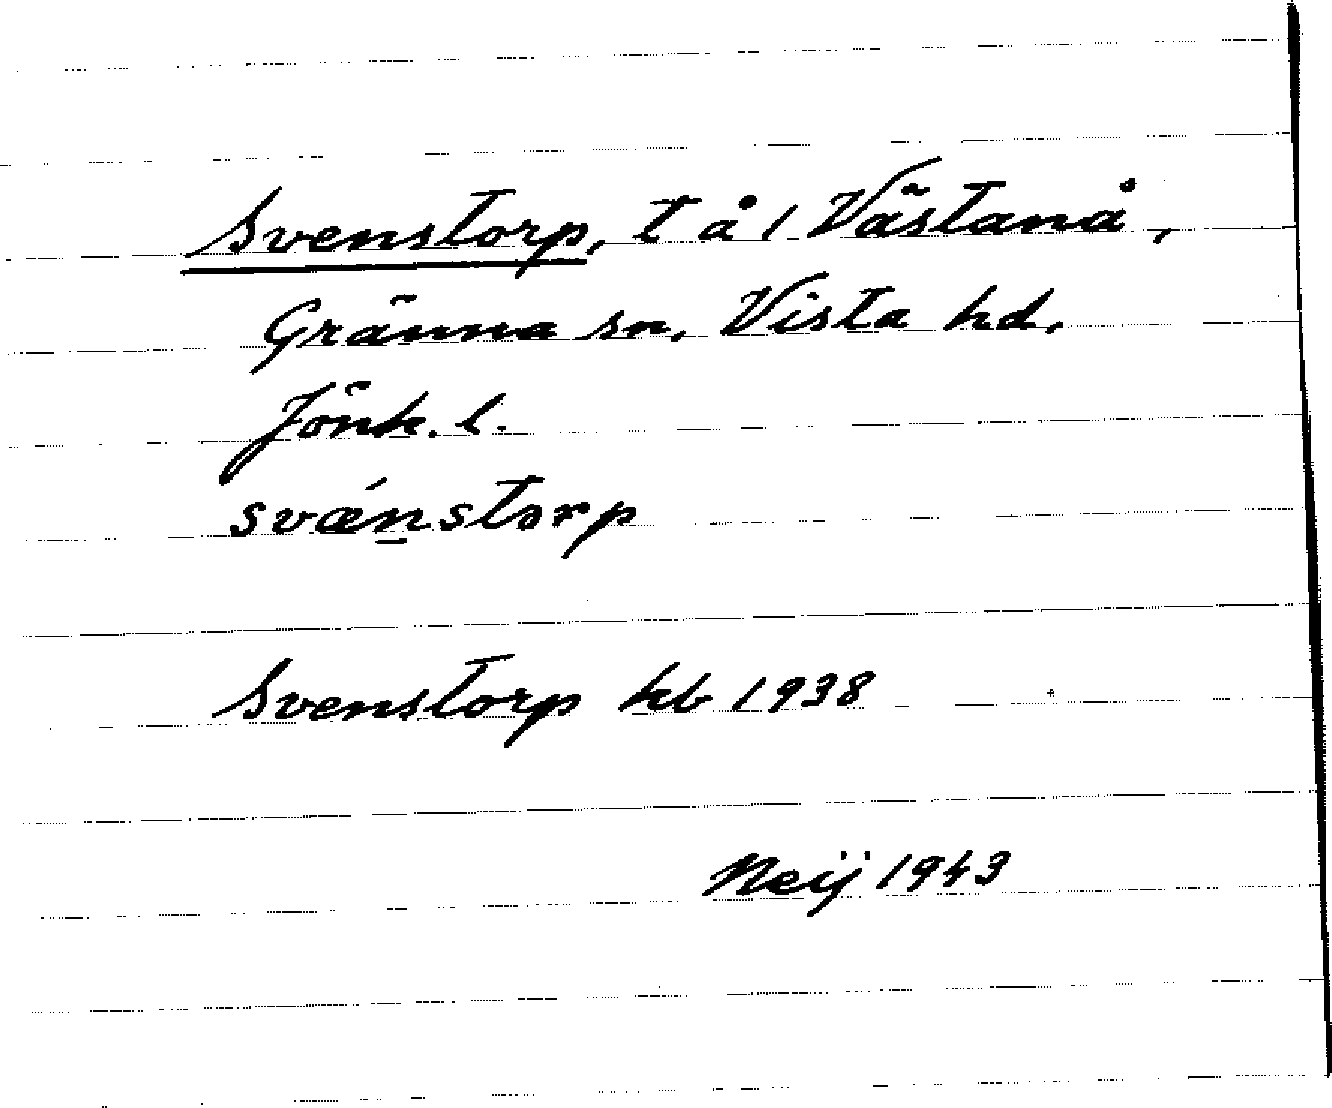 Svenstorp, t å 1 Västanå,
Gränna sn, Vista hd.
Jönk. l.
svǽn̲storp
Svenstorp kb 1938
Neij 1943